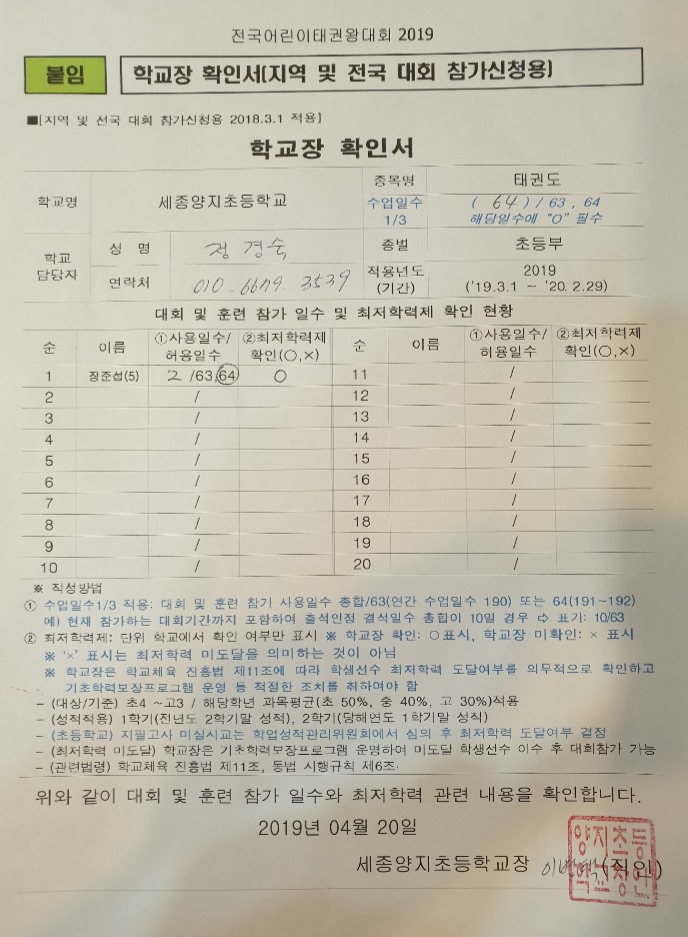 전국어린이태권왕대회 2019
붙임 학교장 확인서(지역 및 전국 대회 참가신청용)
■[지역 및 전국 대회 참가신청용 2018.3.1 적용]
학교장 확인서
학교명 세종양지초등학교 종목명 태권도
수업일수 1/3 ( 64 ) / 63 , 64
해당일수에 "O" 필수
학교 담당자 성 명 정경숙 종별 초등부
연락처 010.6679.3539 적용년도 (기간) 2019
('19.3.1 - '20.2.29)
대회 및 훈련 참가 일수 및 최저학력제 확인 현황
순 이름 ①사용일수/허용일수 ②최저학력제 확인(○,×) 순 이름 ①사용일수/허용일수 ②최저학력제 확인(○,×)
1 장준섭(5) 2 /63,64 ○ 11 /
2 / 12 /
3 / 13 /
4 / 14 /
5 / 15 /
6 / 16 /
7 / 17 /
8 / 18 /
9 / 19 /
10 / 20 /
※ 작성방법
① 수업일수1/3 적용: 대회 및 훈련 참가 사용일수 총합/63(연간 수업일수 190) 또는 64(191~192)
예) 현재 참가하는 대회기간까지 포함하여 출석인정 결석일수 총합이 10일 경우 ⇨ 표기: 10/63
② 최저학력제: 단위 학교에서 확인 여부만 표시 ※ 학교장 확인: ○표시, 학교장 미확인: × 표시
※ '×' 표시는 최저학력 미도달을 의미하는 것이 아님
※ 학교장은 학교체육 진흥법 제11조에 따라 학생선수 최저학력 도달여부를 의무적으로 확인하고
기초학력보장프로그램 운영 등 적절한 조치를 취하여야 함
- (대상/기준) 초4 ~고3 / 해당학년 과목평균(초 50%, 중 40%, 고 30%)적용
- (성적적용) 1학기(전년도 2학기말 성적), 2학기(당해연도 1학기말 성적)
- (초등학교) 지필고사 미실시교는 학업성적관리위원회에서 심의 후 최저학력 도달여부 결정
- (최저학력 미도달) 학교장은 기초학력보장프로그램 운영하여 미도달 학생선수 이수 후 대회참가 가능
- (관련법령) 학교체육 진흥법 제11조, 동법 시행규칙 제6조.
위와 같이 대회 및 훈련 참가 일수와 최저학력 관련 내용을 확인합니다.
2019년 04월 20일
세종양지초등학교장 (직인)
양지초등
학교장인